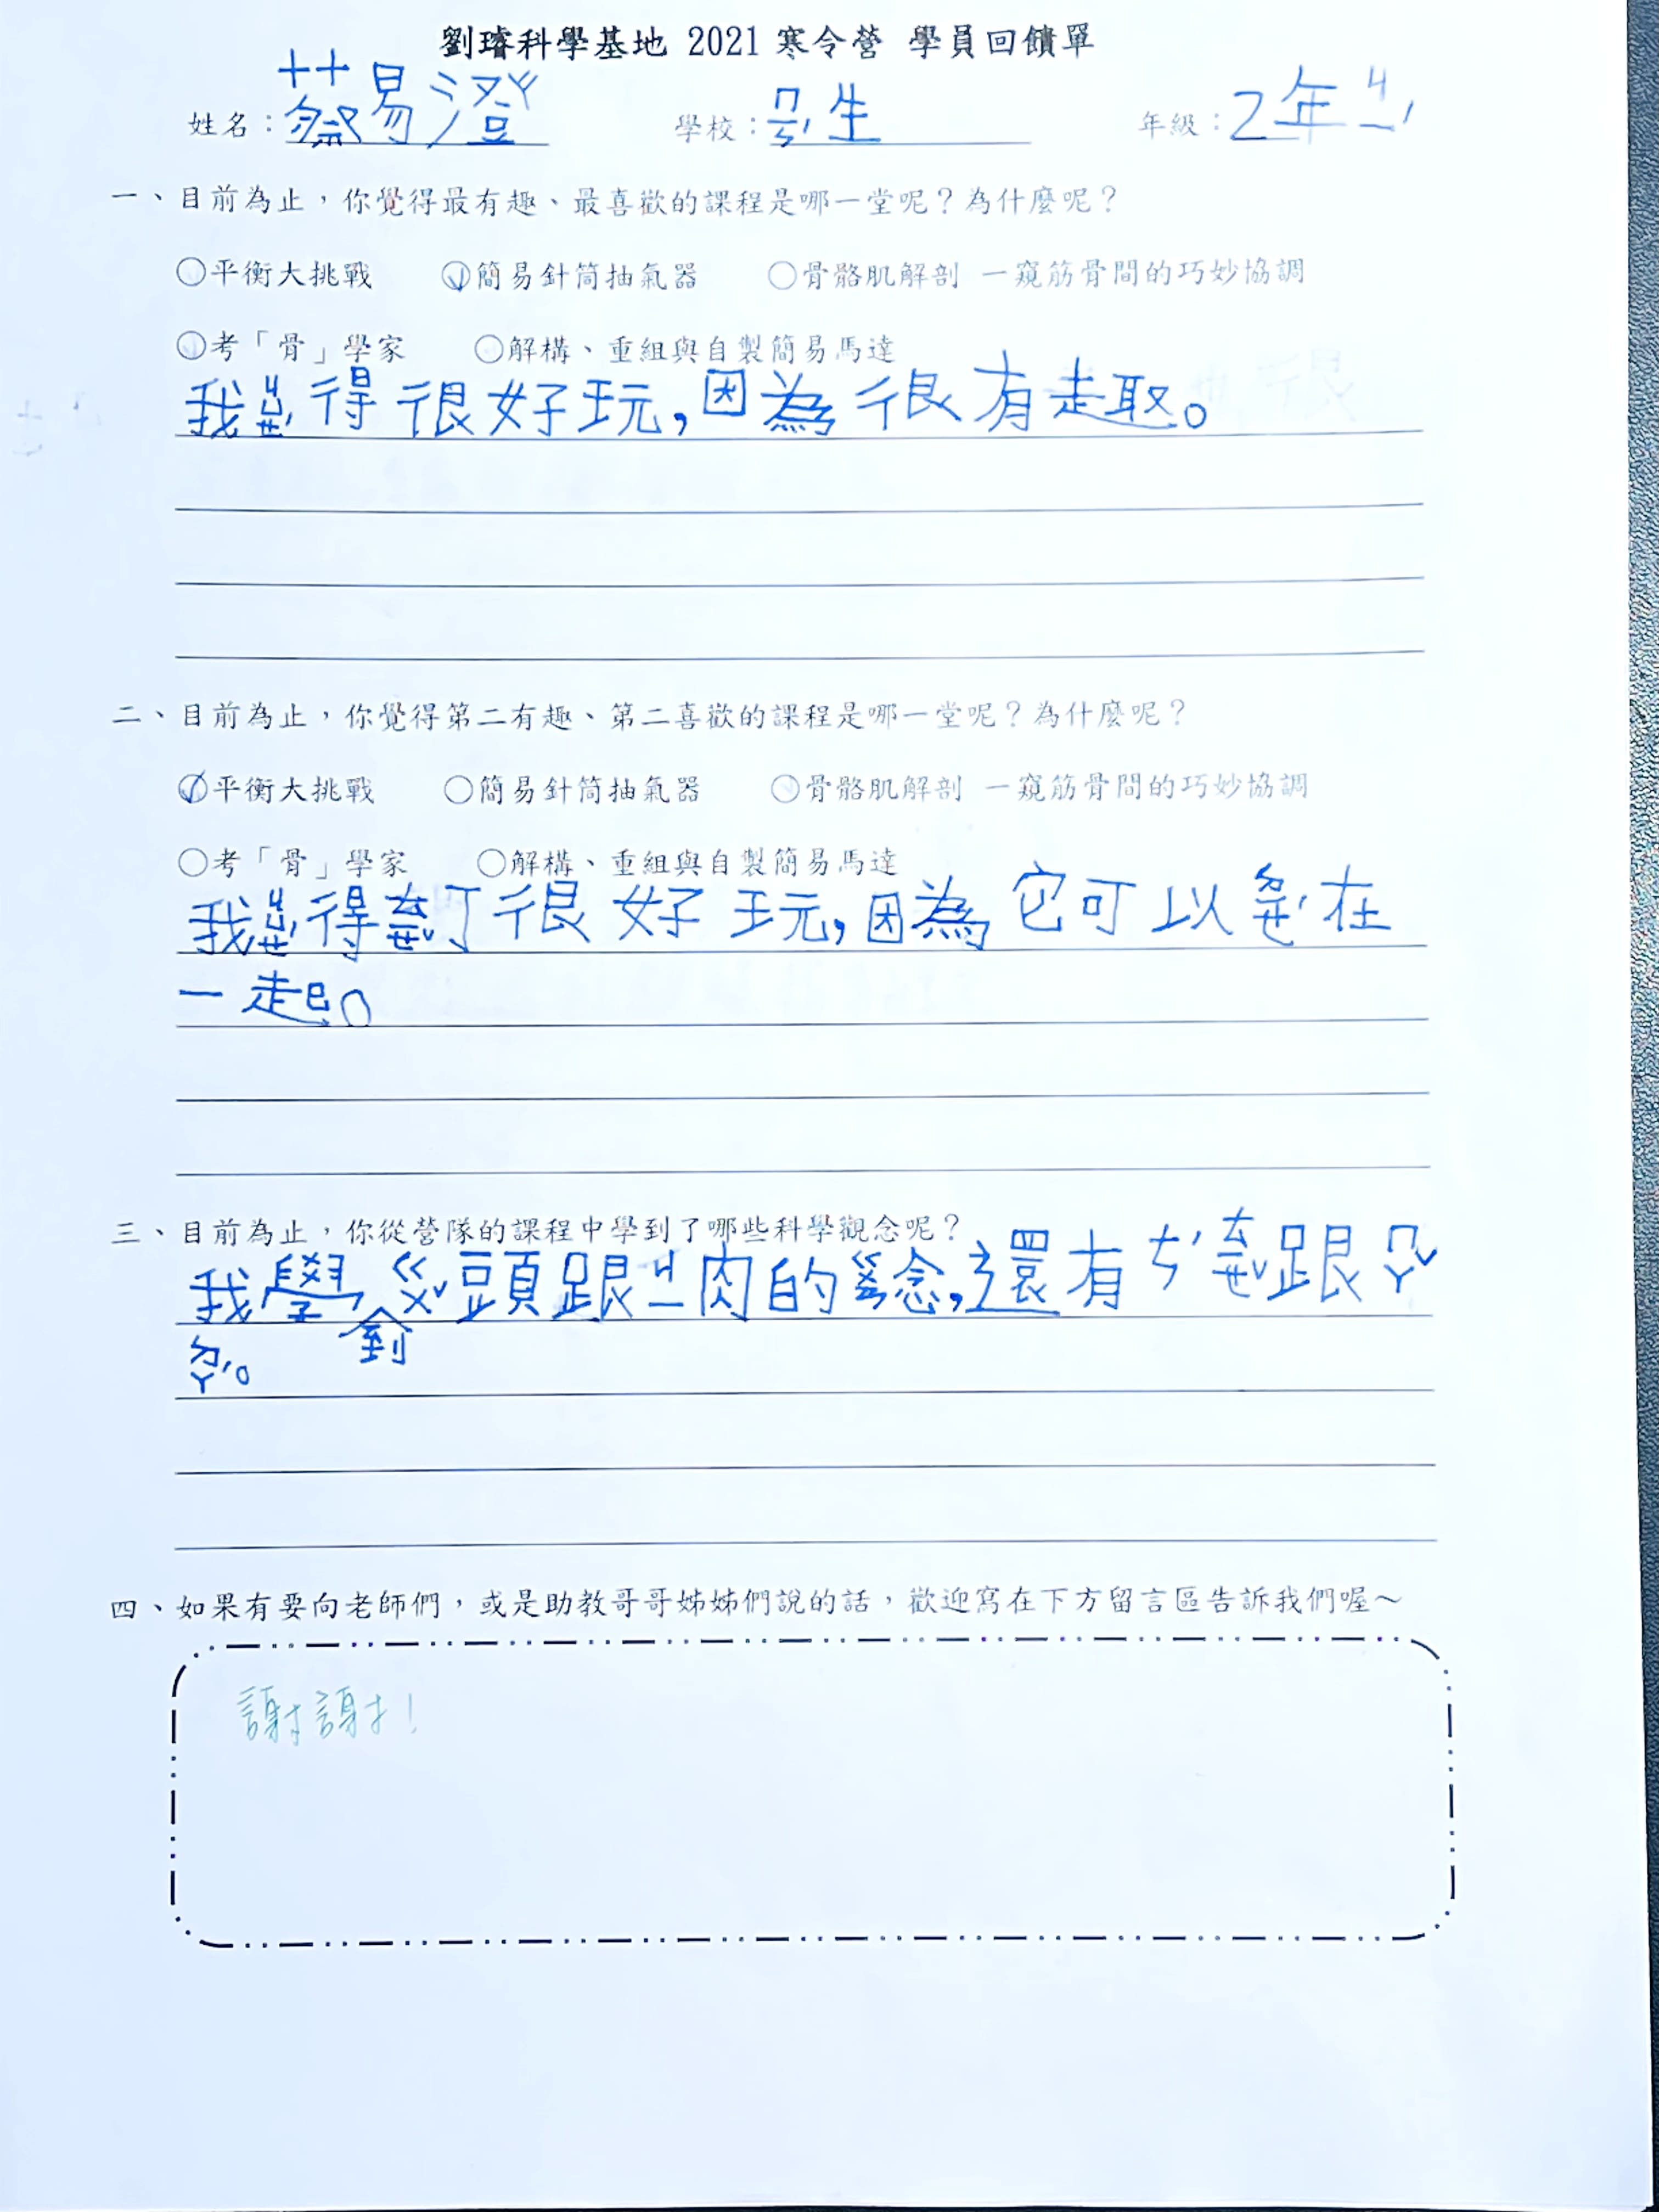 劉璿科學基地 2021 寒令營 學員回饋單
姓名：蔡易澄 學校：ㄇㄧㄣˊ生 年級：2年ㄐㄧˊ
一、目前為止，你覺得最有趣、最喜歡的課程是哪一堂呢？為什麼呢？
○平衡大挑戰 ○簡易針筒抽氣器 ○骨骼肌解剖 一窺筋骨間的巧妙協調
○考「骨」學家 ○解構、重組與自製簡易馬達
我ㄐㄩㄝˊ得很好玩,因為很有趣。
二、目前為止，你覺得第二有趣、第二喜歡的課程是哪一堂呢？為什麼呢？
○平衡大挑戰 ○簡易針筒抽氣器 ○骨骼肌解剖 一窺筋骨間的巧妙協調
○考「骨」學家 ○解構、重組與自製簡易馬達
我ㄐㄩㄝˊ得 很好玩,因為它可以ㄉㄧㄝˊ在
一起。
三、目前為止，你從營隊的課程中學到了哪些科學觀念呢？
我學到ㄍㄨˇ頭跟ㄐㄧ肉的ㄍㄨㄢ念,還有 跟ㄇㄚˇ
ㄉㄚˊ。
四、如果有要向老師們，或是助教哥哥姊姊們說的話，歡迎寫在下方留言區告訴我們喔～
謝謝！